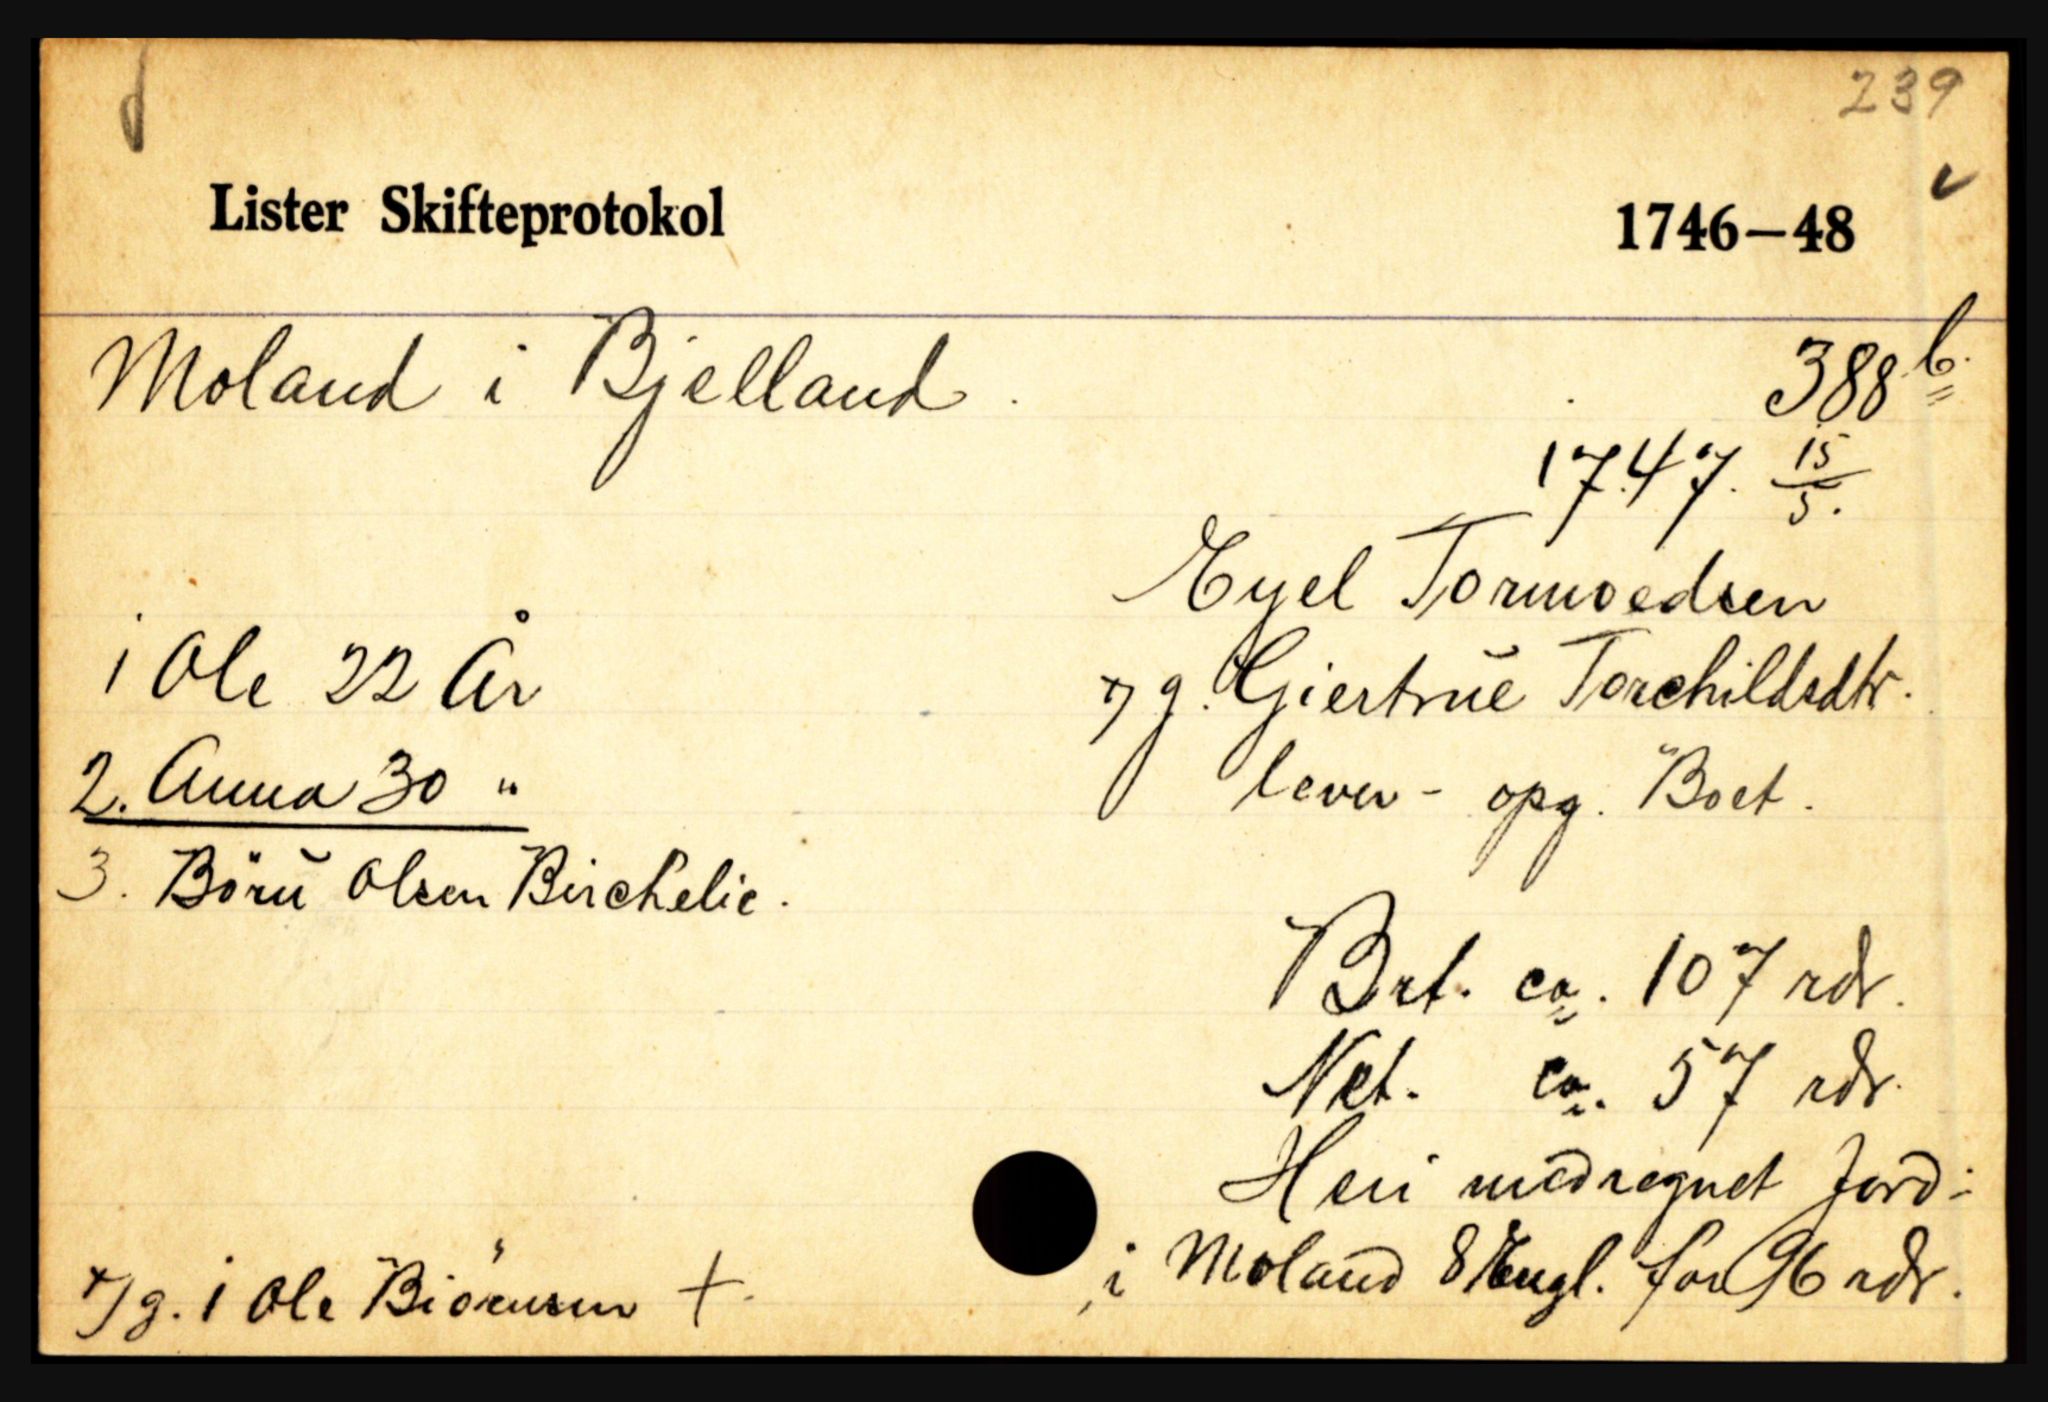 239
Lister Skifteprotokol 1746–48
Moland i Bjelland. 388 b.
1747. 15/5.
Eyel Tormoedsen
1 Ole 22 År
g. Giertrue Torchildsdtr.
2. Anna 30 "
lever - opg. Boet.
3. Börü Olsen Birchelie.
Brt. ca. 107 rdr.
Net. ca. 57 rdr.
Heri medregnet Jord:
i Moland 8 Engl. for 96 rdr.
g. 1 Ole Biörnsen +.